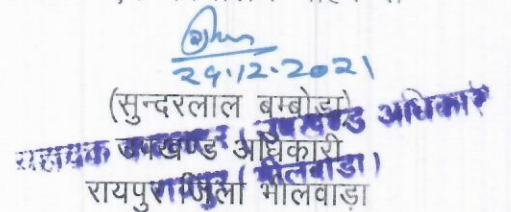 29.12.2021
(सुन्दरलाल बम्बोडा)
उपखण्ड अधिकारी
रायपुर जिला भीलवाड़ा
उपखण्ड अधिकारी
रायपुर (भीलवाडा)